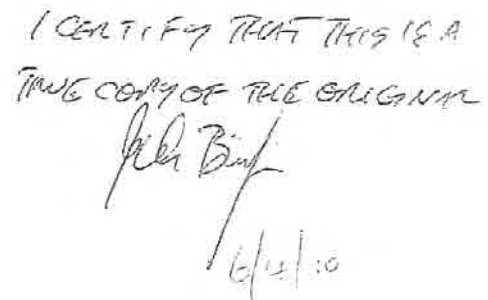 I CERTIFY THAT THIS IS A
TRUE COPY OF THE ORIGINAL
6/4/10